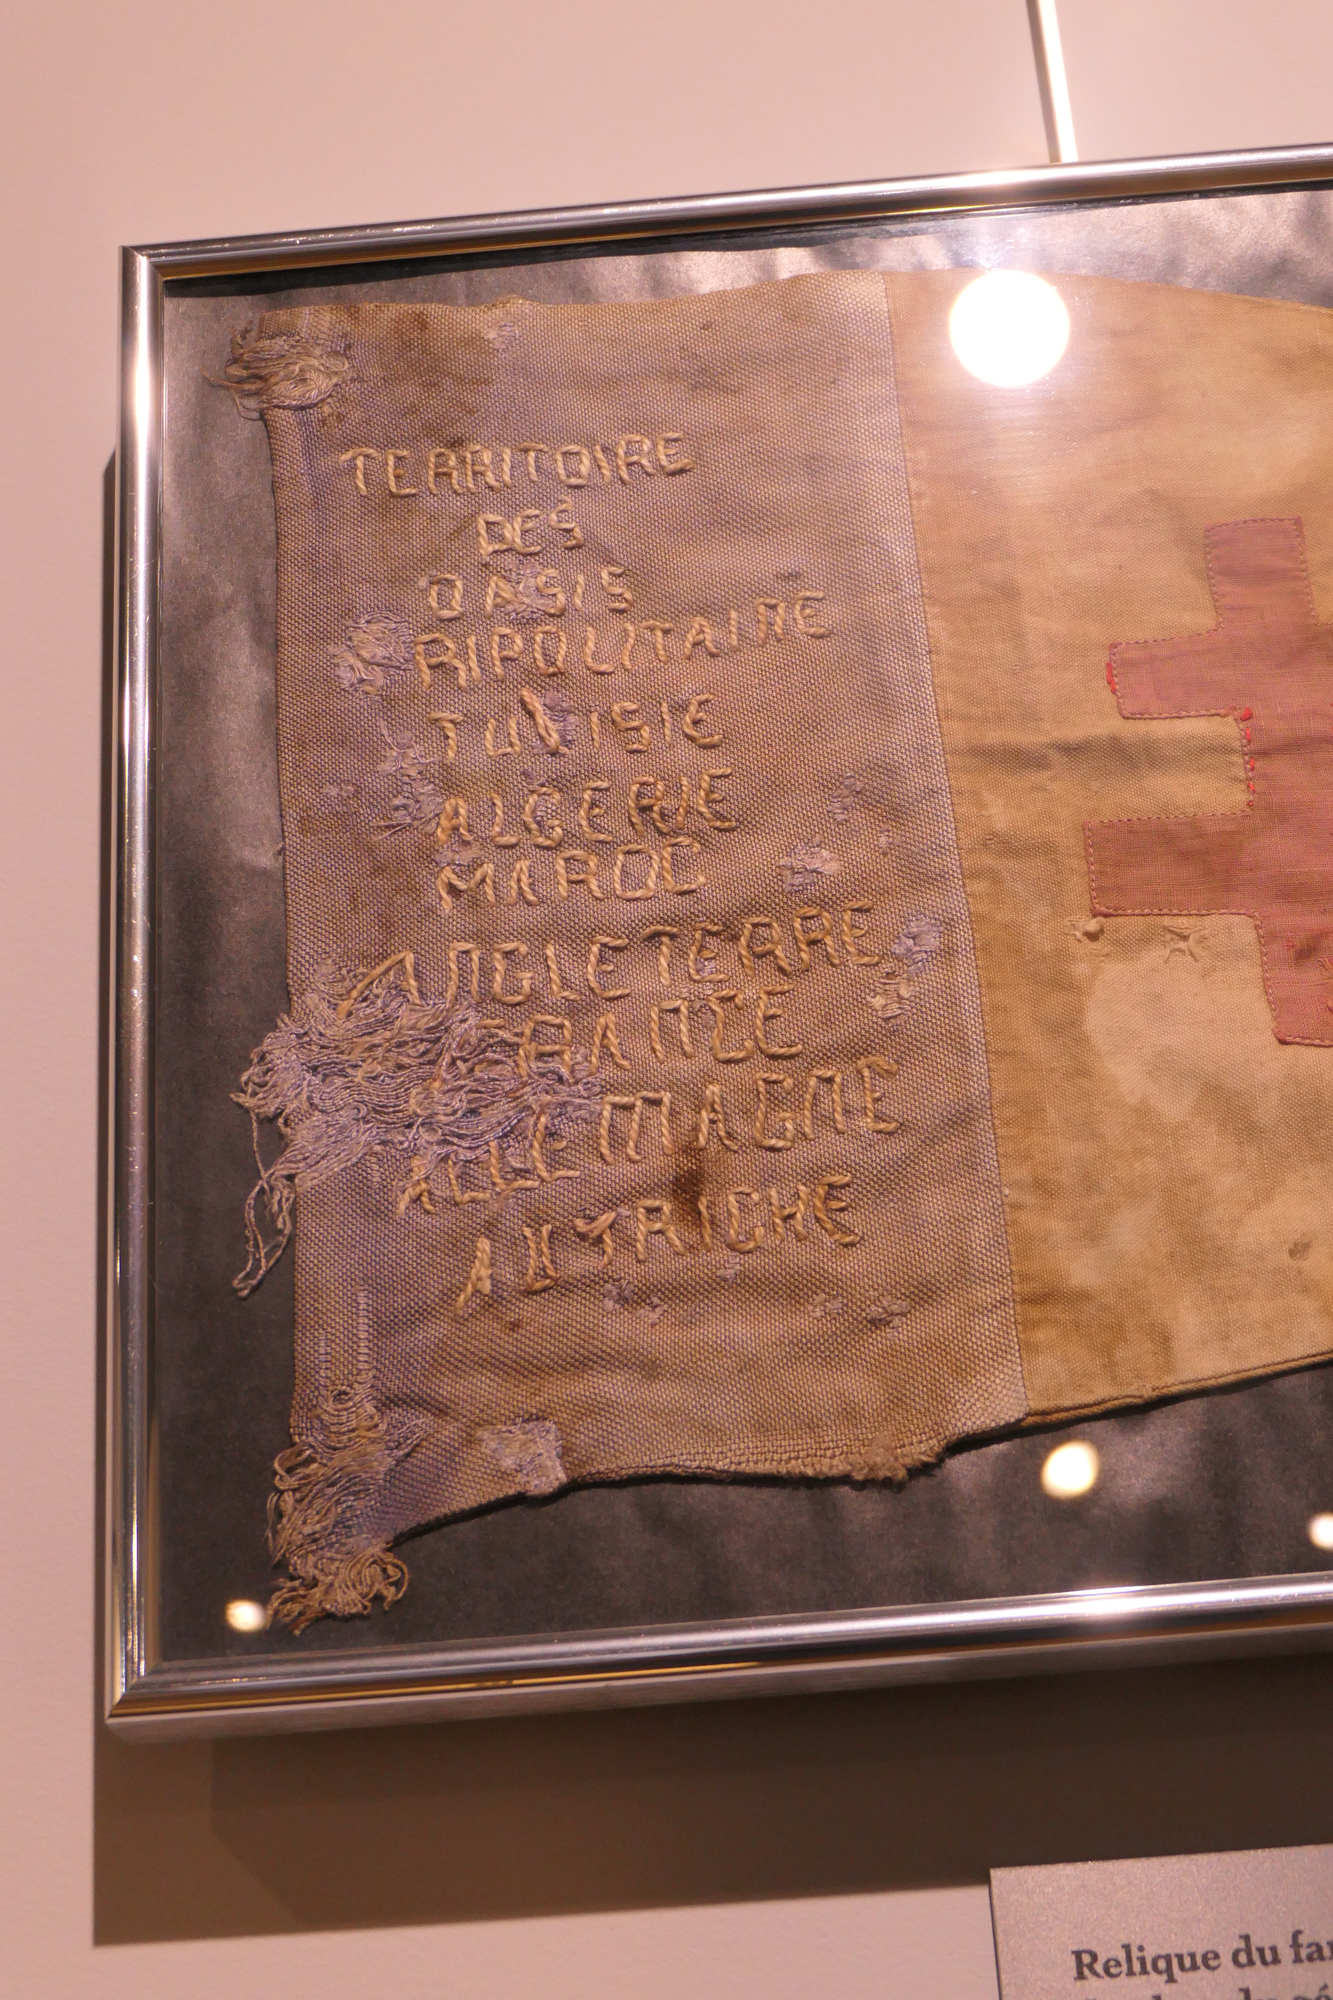 TERRITOIRE
DES
OASIS
RIPOLITAINE
TUNISIE
ALGERIE
MAROC
ANGLETERRE
FRANCE
ALLEMAGNE
AUTRICHE
Relique du fan